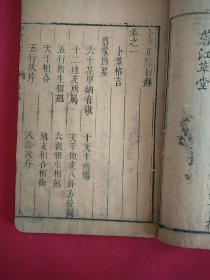 卜筮正宗目錄
卷之一
卜筮格言
啓蒙節要
六十花甲納音歌
十天干所屬
十二地支所屬
天干地支八卦方位圖
五行相生相剋
六親相生相剋
天干相合
地支相合相衝
五行次序
八卦次序
蓉江草堂